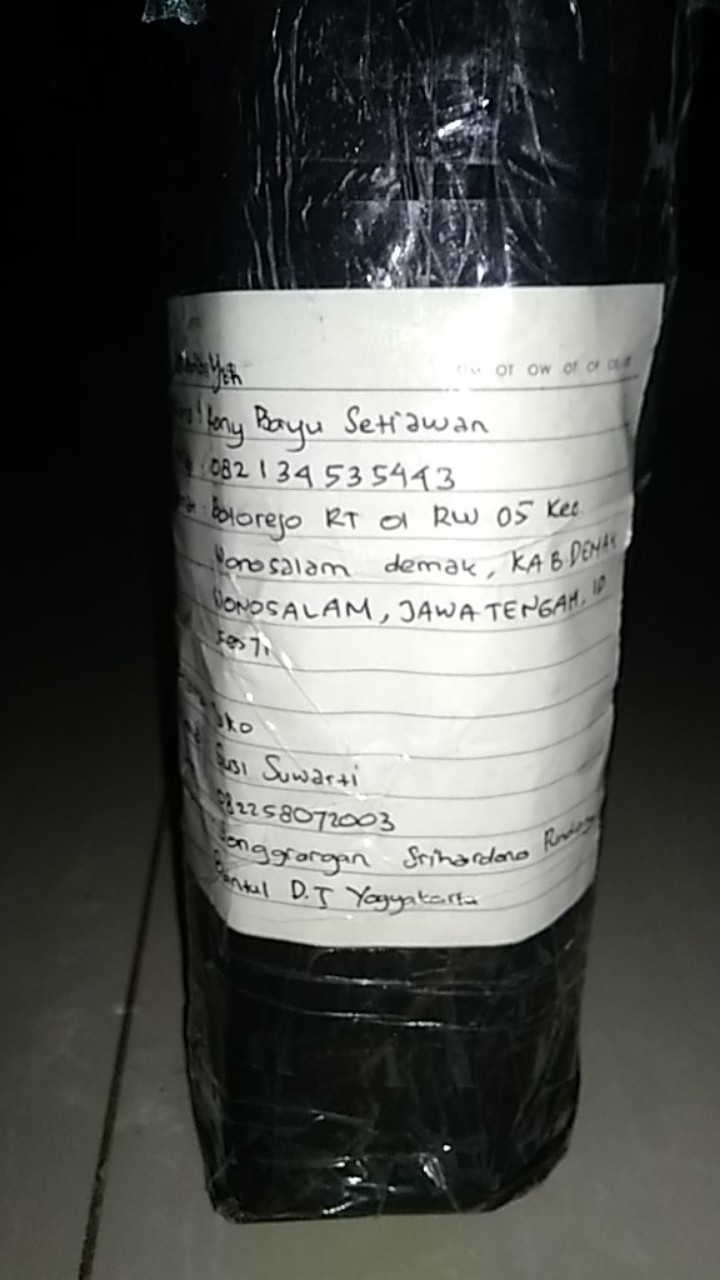 Yth
Rony Bayu Setiawan
: 082134535443
: Botorejo RT 01 RW 05 Kec
Wonosalam demak, KAB.DEMAK
WONOSALAM, JAWA TENGAH, ID
59571
Susi Suwarti
082258072003
Jonggrangan Srihardono Pundong
Bantul D.I Yogyakarta